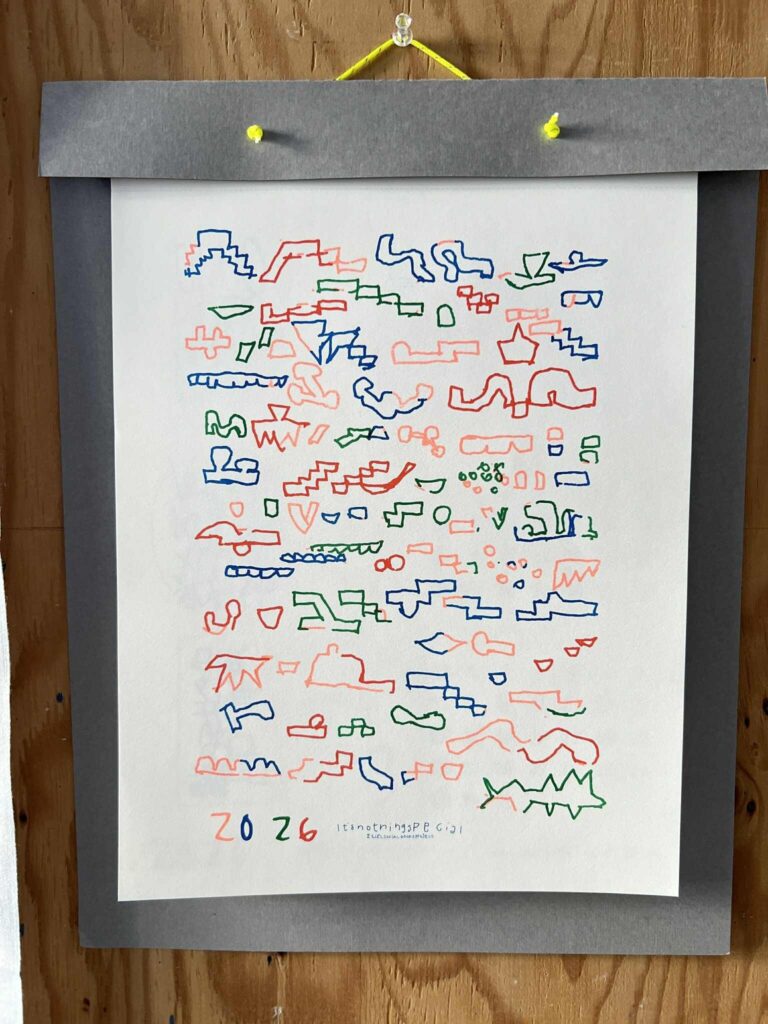 2026
ItsnothingsPECial